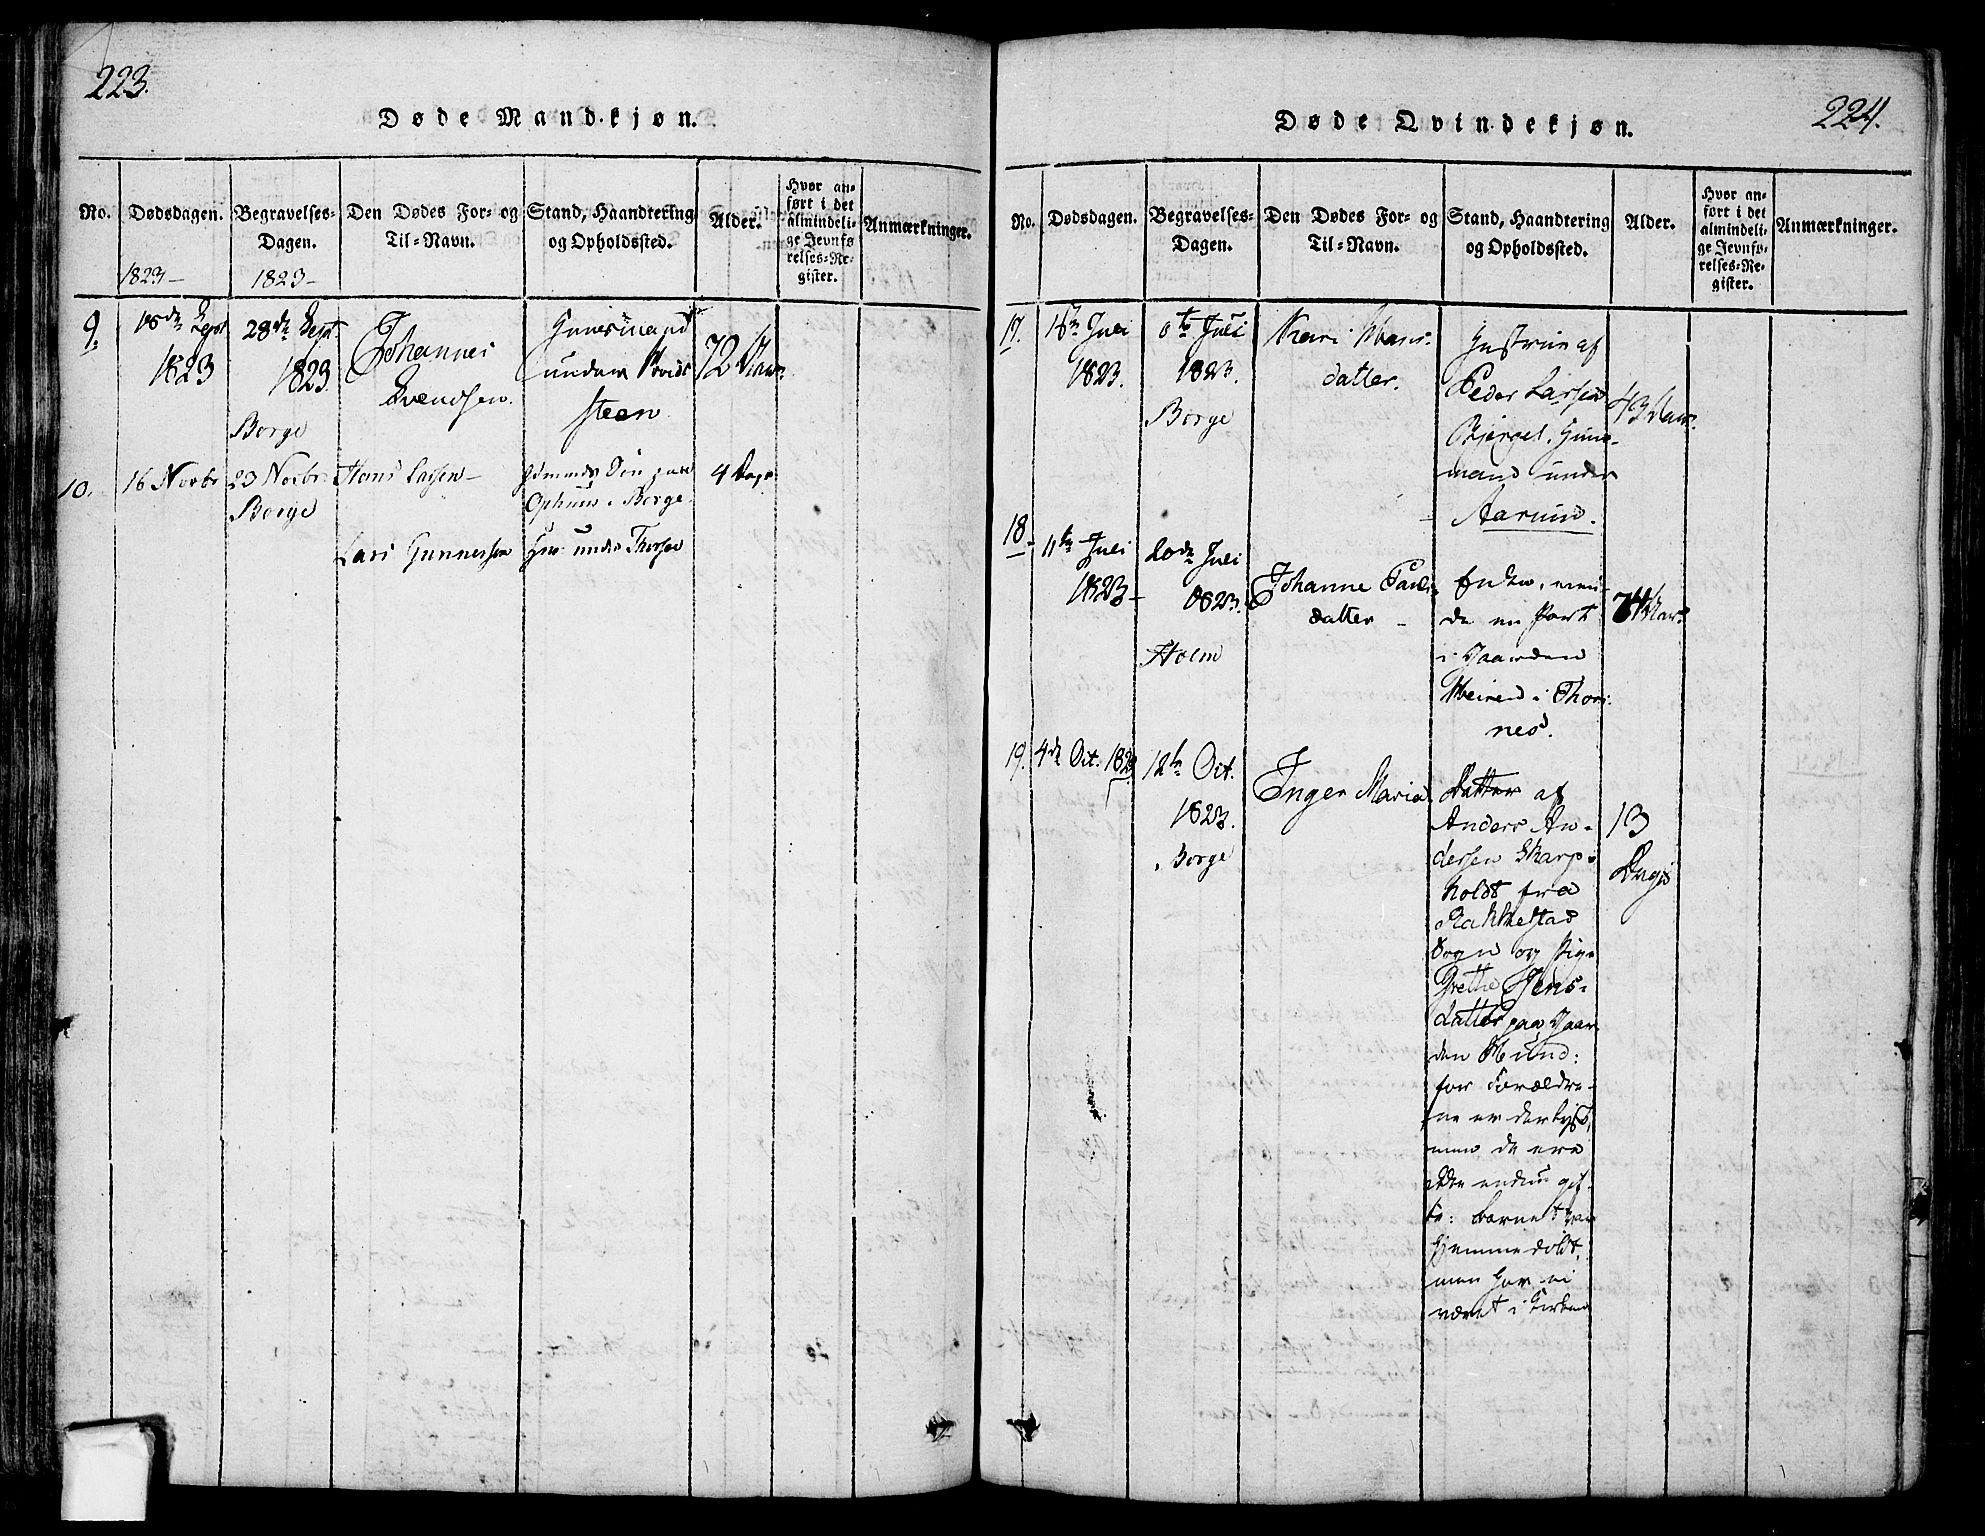 223.
Døde Mandkjøn.
No.
Dødsdagen.
Begravelses-
Dagen.
Den Dødes For- og
Til-Navn.
Stand, Haandtering
og Opholdssted.
Alder.
Hvor an-
ført i det
almindeli-
ge Jevnfø
relses-Re-
gister.
Anmærkninger.
1823-
1823-
9.
18de Sept
1823
28de Sept.
1823
Borge
Johannes
Svendsen.
Huusmand
under
steen
72 Aar
10.
16 Novbr
23 Novbr
Borge
Hans Larsen
Lars Gunnersen
Søn paa
i Borge
Huus under
4 Dage
224.
Døde Qvindekjøn.
No.
Dødsdagen.
Begravelses-
Dagen.
Den Dødes For- og
Til-Navn.
Stand, Haandtering
og Opholdssted.
Alder.
Hvor an-
ført i det
almindeli-
ge Jevnfø-
relses-Re-
gister.
Anmærkninger.
17.
Juli
1823.
Juli
1823.
Borge
Kari Hans-
datter.
Hustrue af
Peder Larsen
Huus-
mand under
Aarum.
43 Aar.
18.
11te Juli
1823-
20de Juli
1823.
Holm
Johanne Pauls-
datter -
Enke,
i Gaarden
i Thors-
nes.
74 Aar.
19.
4de Oct. 1823
12te Oct.
1823.
Borge
Inger Maria
Datter af
Anders An-
dersen Skarp-
holdt fra
Rakkestad
Sogn og Pige
Grethe Jens-
datter paa Gaar
den Hund:
for Forældre-
ne er der lyst,
men de ere
ikke endnu gif-
te: barnet var
hjemmedøbt,
men har ei
været i Kirken
13
Dage